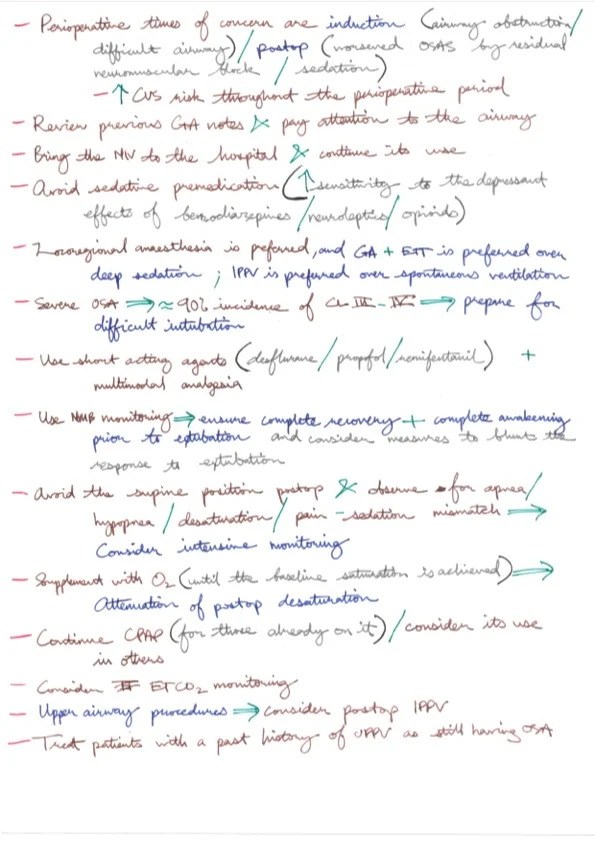 — Perioperative times of concern are induction (airway obstruction/
difficult airway)/postop (worsened OSAS by residual
neuromuscular block / sedation)
— ↑ CVS risk throughout the perioperative period
— Review previous GA notes & pay attention to the airway
— Bring the NIV to the hospital & continue its use
— Avoid sedative premedication (↑ sensitivity to the depressant
effects of benzodiazepines/neuroleptics/opioids)
— Locoregional anaesthesia is preferred, and GA + ETT is preferred over
deep sedation ; IPPV is preferred over spontaneous ventilation
— Severe OSA ⇒ ≈ 90% incidence of CL III - IV ⇒ prepare for
difficult intubation
— Use short acting agents (desflurane / propofol / remifentanil) +
multimodal analgesia
— Use NMB monitoring ⇒ ensure complete recovery + complete awakening
prior to extubation and consider measures to blunt the
response to extubation
— Avoid the supine position postop & observe for apnea/
hypopnea / desaturation / pain - sedation mismatch ⇒
Consider intensive monitoring
— Supplement with O2 (until the baseline saturation is achieved) ⇒
Attenuation of postop desaturation
— Continue CPAP (for those already on it) / consider its use
in others
— Consider ETCO2 monitoring
— Upper airway procedures ⇒ consider postop IPPV
— Treat patients with a past history of UPPV as still having OSA